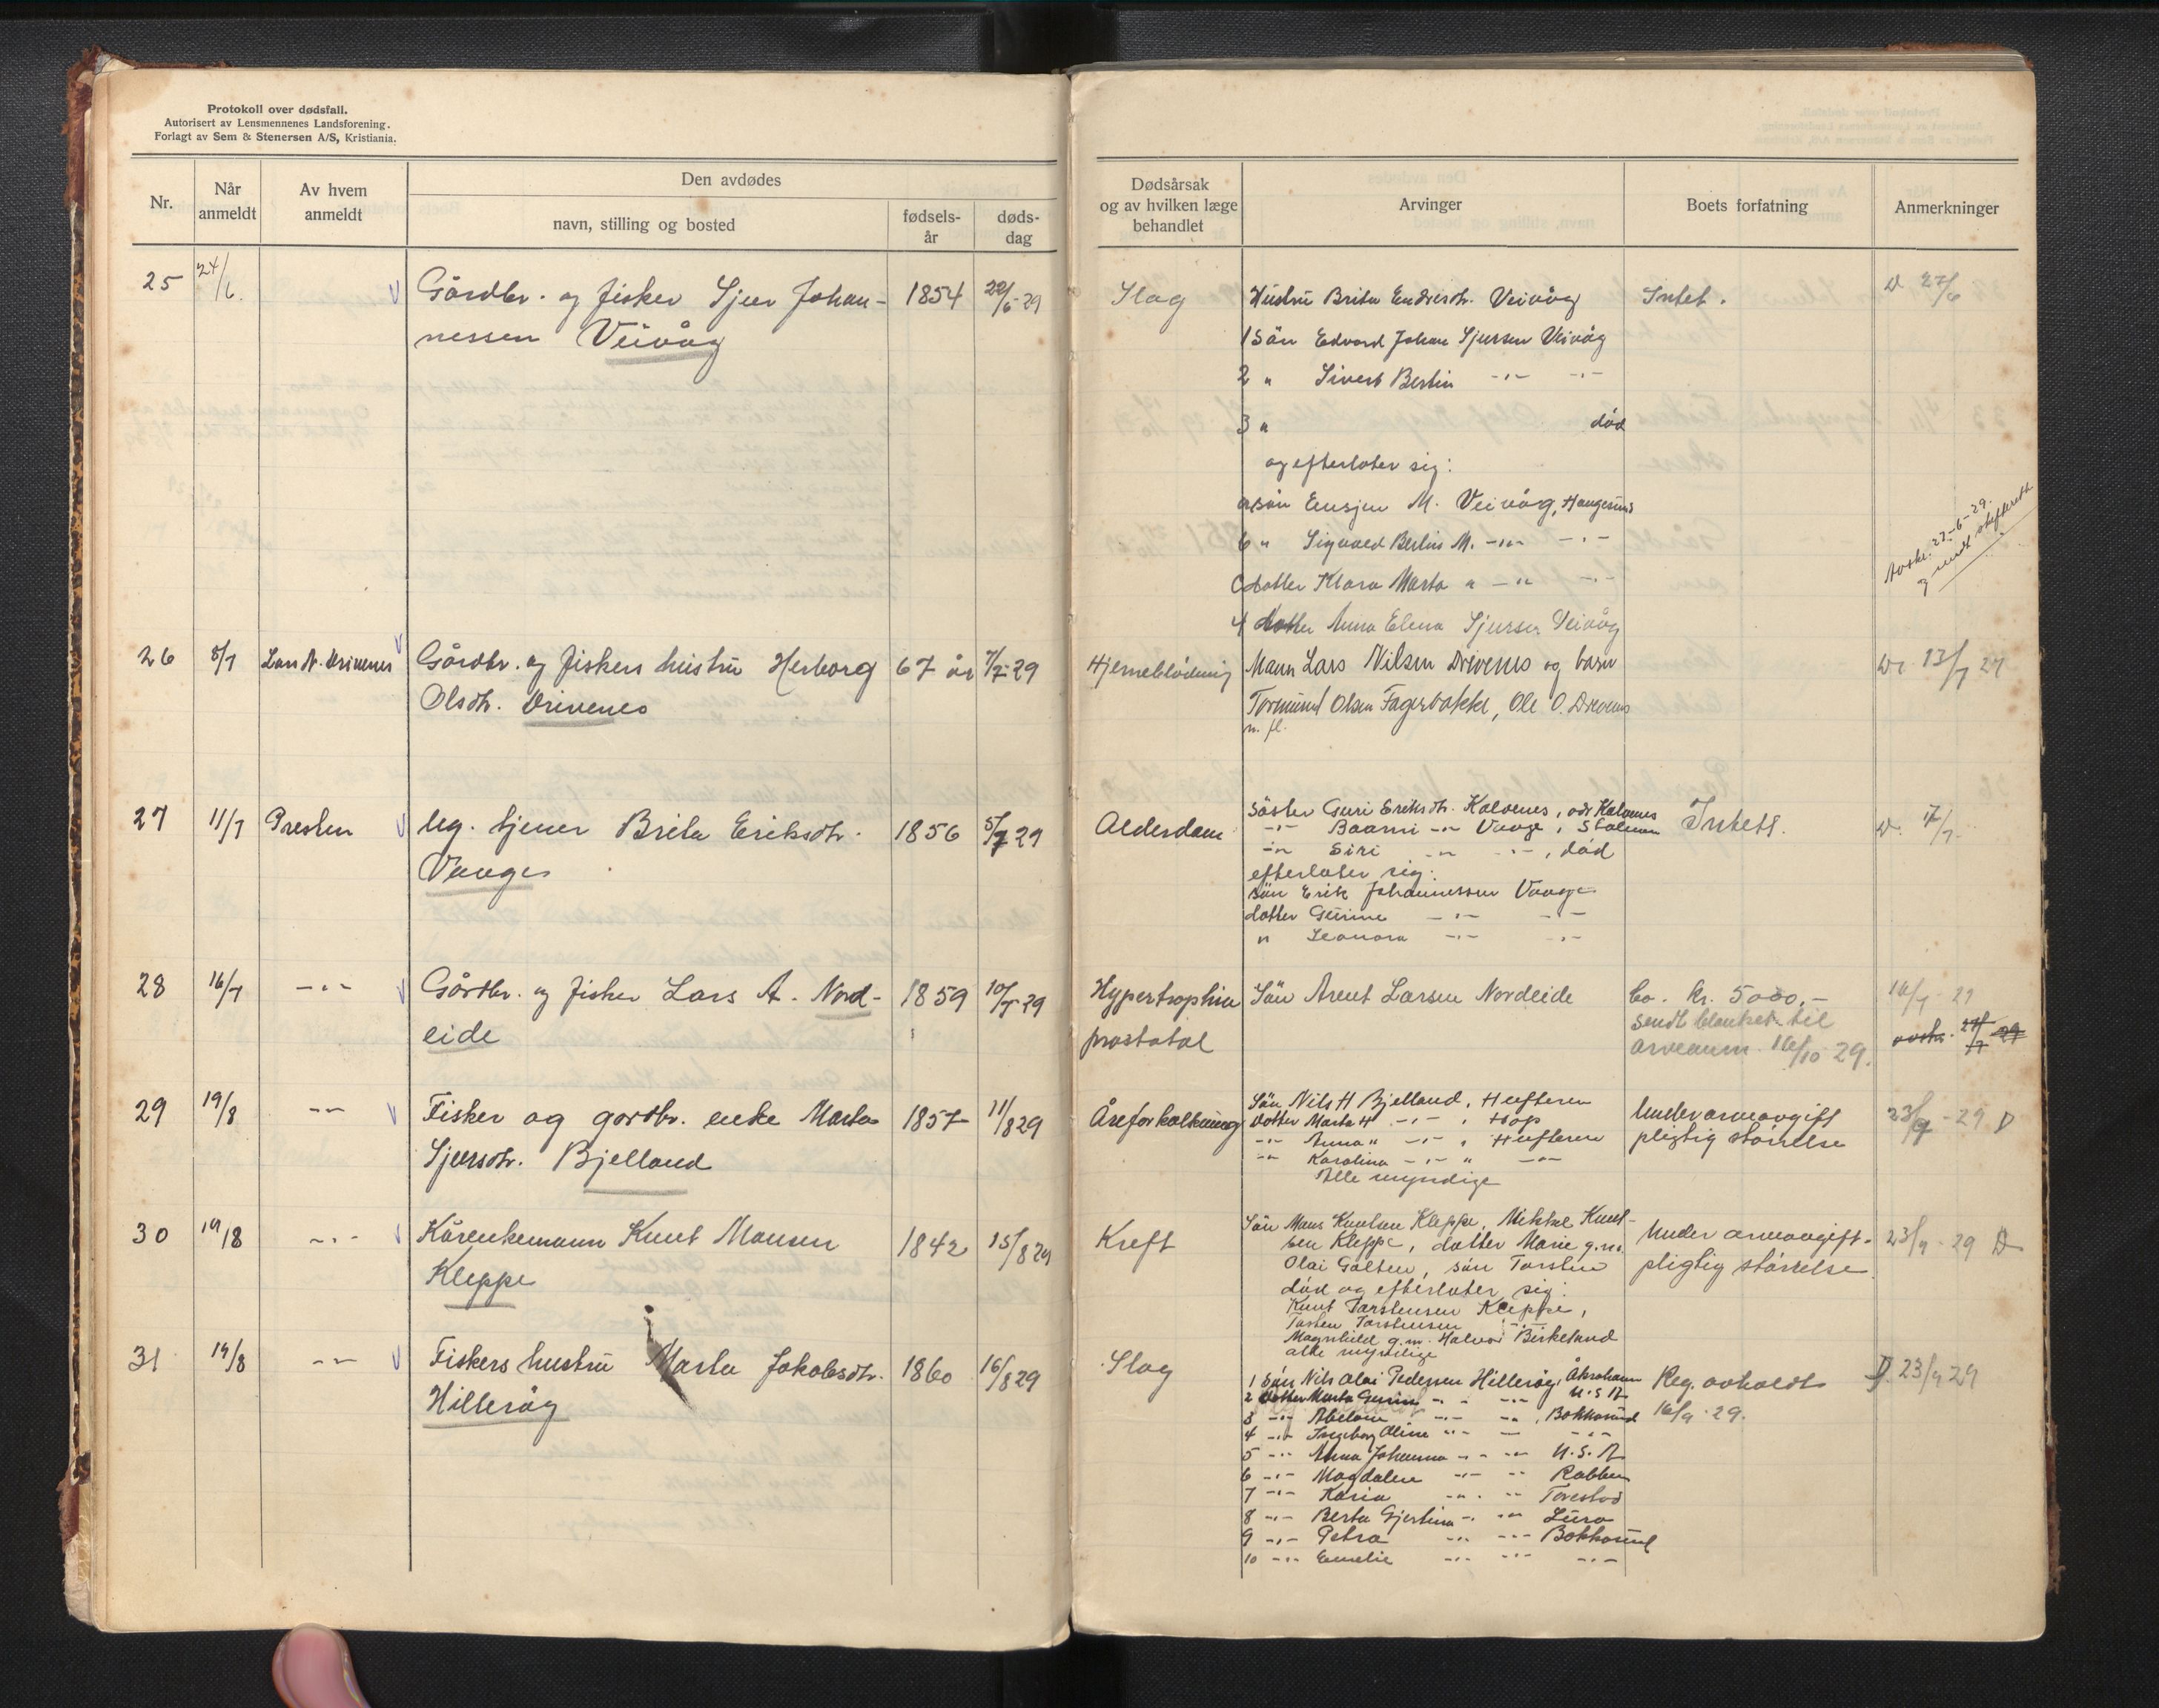 Protokoll over dødsfall.
Autorisert av Lensmennenes Landsforening.
Forlagt av Sem & Stenersen A/S, Kristiania.
Nr.
Når anmeldt
Av hvem anmeldt
Den avdødes
navn, stilling og bosted
fødsels-år
døds-dag
Dødsårsak og av hvilken læge behandlet
Arvinger
Boets forfatning
Anmerkninger
25 24/6 Gårdbr. og fisker Sjur Johan- 1854 22/6-29
nessen Veivåg
Slag
Hustru Brita Endresdtr. Veivåg
1 Sön Edvard Johan Sjursen Veivåg
2 " Sivert Bertin -"- -"-
3 " död
og efterlater sig:
a sön M. Veivåg, Haugesund
b " Sigvald Bertin M. -"- -"-
c datter Klara Marta " -"- -"-
4 datter Anna Elena Sjursen Veivåg
Intet.
D 27/6
27-6-29
26 8/7 Lars N. Drivenes Gårdbr. og fiskers hustru Herborg 67 år 7/7-29
Olsdtr. Drivenes
Hjerneblödning
Mann Lars Nilsen Drivenes og barn
Tormund Olsen Fagerbakke, Ole O. Drivenes
m. fl.
13/7 29
27 11/7 Presten leg. tjener Brita Eriksdtr. 1856 5/7 29
Vaage
Alderdom
Söster Guri Eriksdtr. Kalvenes, adr Kalvenes
-"- Baarni -"- Vaage, Stolmen
-"- Siri -"- -"-, död
efterlater sig:
sön Erik Johannessen Vaage
datter Gurine -"- -"-
" Leonora -"- -"-
Intett.
D. 17/7
28 16/7 -"- Gårdbr. og fisker Lars A. Nord- 1859 10/7-29
eide
Hypertrophia
prostatal
Sön Arent Larsen Nordeide
ca. kr. 5000,-
sendt blanket til
arveanm. 16/10 29.
16/7 29
29 19/8 -"- Fisker og gardbr. enke Marta 1857 11/8 29
Sjursdtr. Bjelland
Åreforkalkning
Sön Nils H Bjelland, Hufteren
Datter Marta H -"-, Hop
-"- Anna " -"-, Hufteren
-"- Karolina -"- " -"-
Alle myndige
Under arveavgift
pligtig störrelse
23/9-29 D
30 19/8 -"- Kårenkemann Knut Monsen 1842 15/8 29
Kleppe
Kreft
Sön Mons Knutsen Kleppe, Mikkel Knut-
sen Kleppe, datter Marie g.m.
Olai Golten, sön Torstein
död og efterlater sig:
Knut Torstensen Kleppe,
Torsten Torstensen -"-
Magnhild g.m. Halvor Birkeland
alle myndige
Under arveavgift-
pligtig störrelse
23/9-29 D
31 19/8 -"- Fiskers hustru Marta Jakobsdtr. 1860 16/8 29
Hillersöy
Slag
1 Sön Nils Olai Pedersen Hillersöy, Åkrehamn
2 Datter Marta Gurine -"- -"- U.S.A
3 -"- Abelone -"- -"-, Bokkasund
4 -"- Ingeborg Oline -"- -"- -"-
5 -"- Anna Johanna -"- -"- U.S.A
6 -"- Magdalene -"- -"- Rabben
7 -"- Karia -"- -"- Torestad
8 -"- Berta Gjertina -"- -"- Lura
9 -"- Petra -"- -"- Bokkasund
10 -"- Emelie -"- -"- -"-
Reg. avholdt
16/9-29.
D. 23/9 29